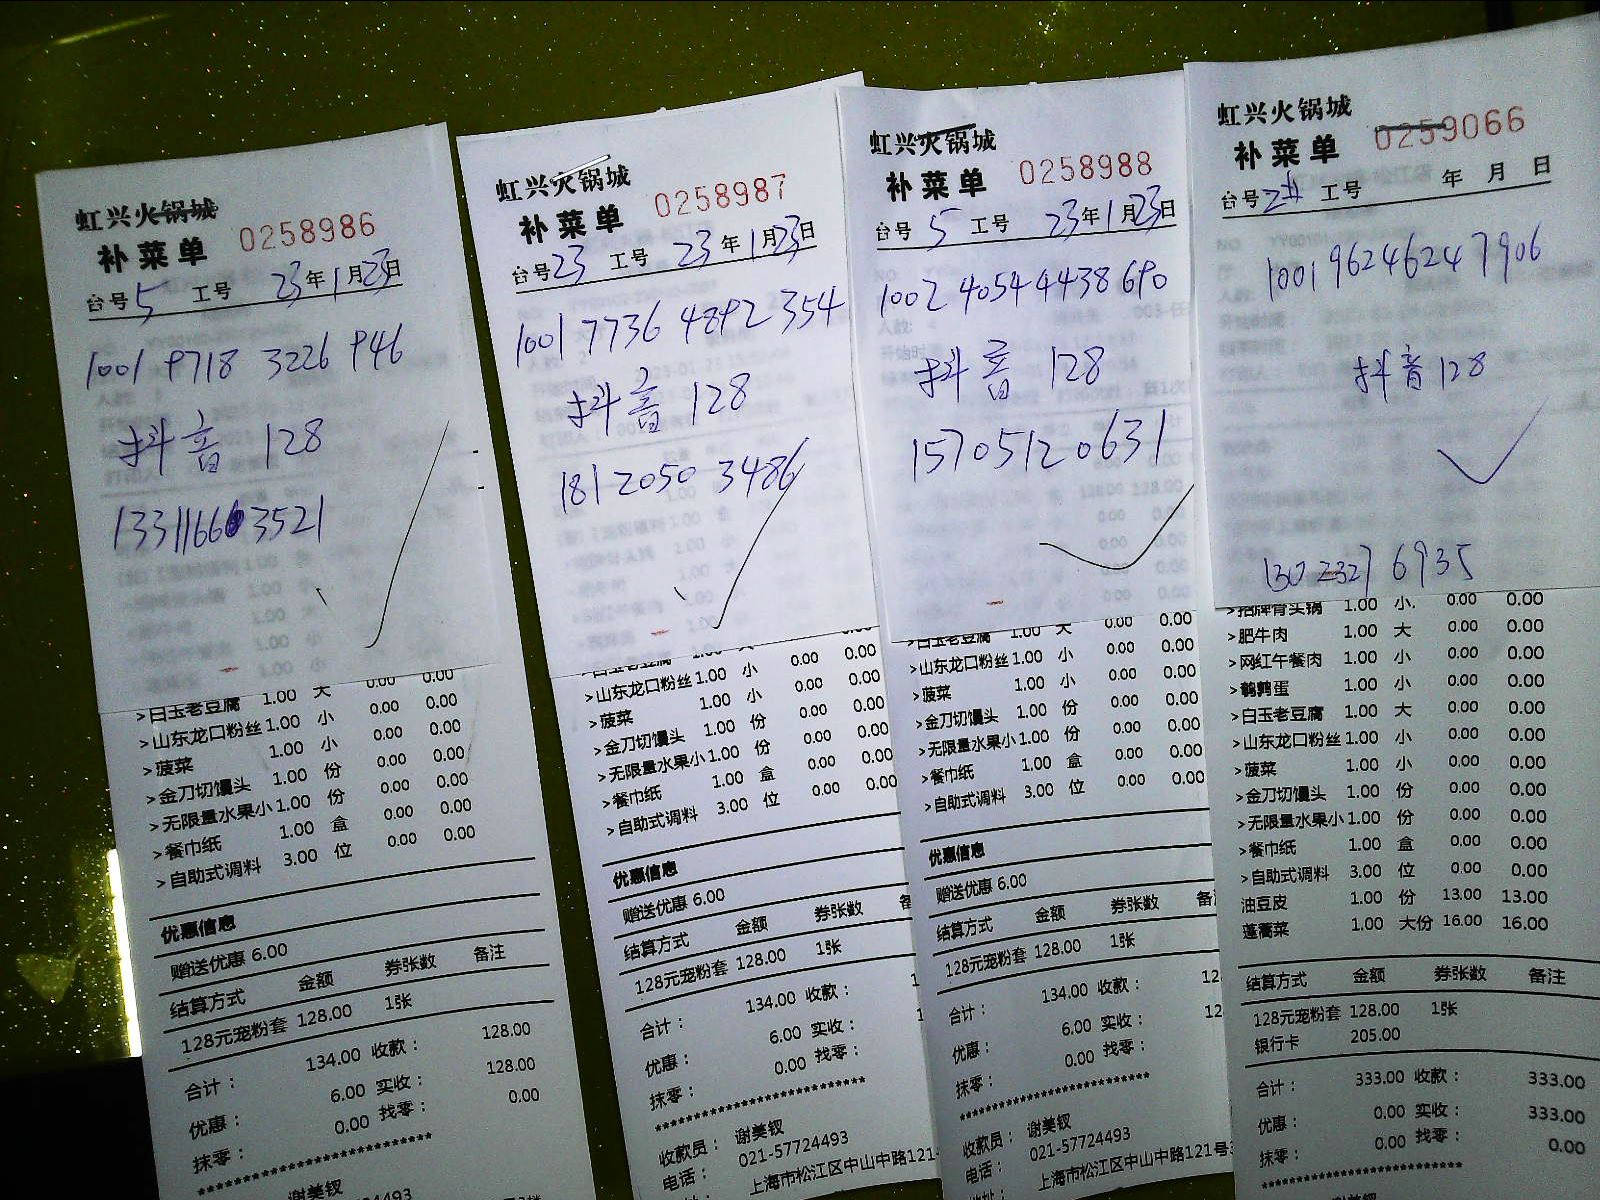 虹兴火锅城
补菜单 0258986
台号 5 工号 23年1月23日
1001 9718 3226 946
抖音 128
13311663521
>白玉老豆腐 1.00 大 0.00 0.00
>山东龙口粉丝 1.00 小 0.00 0.00
>菠菜 1.00 小 0.00 0.00
>金刀切馒头 1.00 份 0.00 0.00
>无限量水果小 1.00 份 0.00 0.00
>餐巾纸 1.00 盒 0.00 0.00
>自助式调料 3.00 位 0.00 0.00
优惠信息
赠送优惠 6.00
结算方式 金额 券张数 备注
128元宠粉套 128.00 1张
合计： 134.00 收款： 128.00
优惠： 6.00 实收： 128.00
抹零： 0.00 找零： 0.00
********************
谢美钗
虹兴火锅城
补菜单 0258987
台号 23 工号 23年1月23日
1001 7736 4892 354
抖音 128
181 2050 3486
>白玉老豆腐 1.00 大 0.00
>山东龙口粉丝 1.00 小 0.00 0.00
>菠菜 1.00 小 0.00 0.00
>金刀切馒头 1.00 份 0.00 0.00
>无限量水果小 1.00 份 0.00 0.00
>餐巾纸 1.00 盒 0.00 0.00
>自助式调料 3.00 位 0.00 0.00
优惠信息
赠送优惠 6.00
结算方式 金额 券张数
128元宠粉套 128.00 1张
合计： 134.00 收款：
优惠： 6.00 实收：
抹零： 0.00 找零：
********************
收款员： 谢美钗
电话： 021-57724493
上海市松江区中山中路121号
虹兴火锅城
补菜单 0258988
台号 5 工号 23年1月23日
1002 4054 4438 690
抖音 128
15705120631
>白玉老豆腐 1.00 大 0.00 0.00
>山东龙口粉丝 1.00 小 0.00 0.00
>菠菜 1.00 小 0.00 0.00
>金刀切馒头 1.00 份 0.00 0.00
>无限量水果小 1.00 份 0.00 0.00
>餐巾纸 1.00 盒 0.00 0.00
>自助式调料 3.00 位 0.00 0.00
优惠信息
赠送优惠 6.00
结算方式 金额 券张数 备
128元宠粉套 128.00 1张
合计： 134.00 收款： 12
优惠： 6.00 实收： 12
抹零： 0.00 找零：
********************
收款员： 谢美钗
电话： 021-57724493
上海市松江区中山中路121号
虹兴火锅城
补菜单 0259066
台号 2# 工号 年 月 日
1001 9624 6247 906
抖音 128
130 2327 6935
>招牌骨头锅 1.00 小. 0.00 0.00
>肥牛肉 1.00 大 0.00 0.00
>网红午餐肉 1.00 小 0.00 0.00
>鹌鹑蛋 1.00 小 0.00 0.00
>白玉老豆腐 1.00 大 0.00 0.00
>山东龙口粉丝 1.00 小 0.00 0.00
>菠菜 1.00 小 0.00 0.00
>金刀切馒头 1.00 份 0.00 0.00
>无限量水果小 1.00 份 0.00 0.00
>餐巾纸 1.00 盒 0.00 0.00
>自助式调料 3.00 位 0.00 0.00
油豆皮 1.00 份 13.00 13.00
蓬蒿菜 1.00 大份 16.00 16.00
结算方式 金额 券张数 备注
128元宠粉套 128.00 1张
银行卡 205.00
合计： 333.00 收款： 333.00
优惠： 0.00 实收： 333.00
抹零： 0.00 找零： 0.00
********************